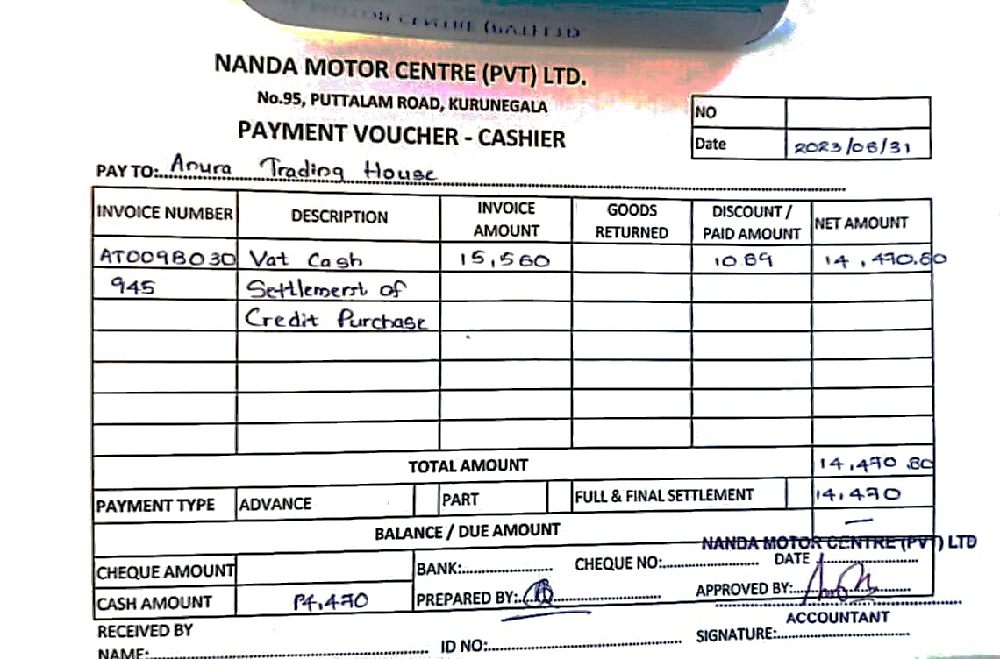 NANDA MOTOR CENTRE (PVT) LTD.
No.95, PUTTALAM ROAD, KURUNEGALA
PAYMENT VOUCHER - CASHIER
NO
Date 2023/08/31
PAY TO: Anura Trading House
INVOICE NUMBER DESCRIPTION INVOICE AMOUNT GOODS RETURNED DISCOUNT / PAID AMOUNT NET AMOUNT
AT009B030 Vat Cash 15,560 1089 14,470.80
945 Settlement of
Credit Purchase
TOTAL AMOUNT 14,470.80
PAYMENT TYPE ADVANCE PART FULL & FINAL SETTLEMENT 14,470
BALANCE / DUE AMOUNT —
NANDA MOTOR CENTRE (PVT) LTD
CHEQUE AMOUNT BANK: CHEQUE NO: DATE
CASH AMOUNT 14,470 PREPARED BY: APPROVED BY:
ACCOUNTANT
RECEIVED BY
NAME: ID NO: SIGNATURE: